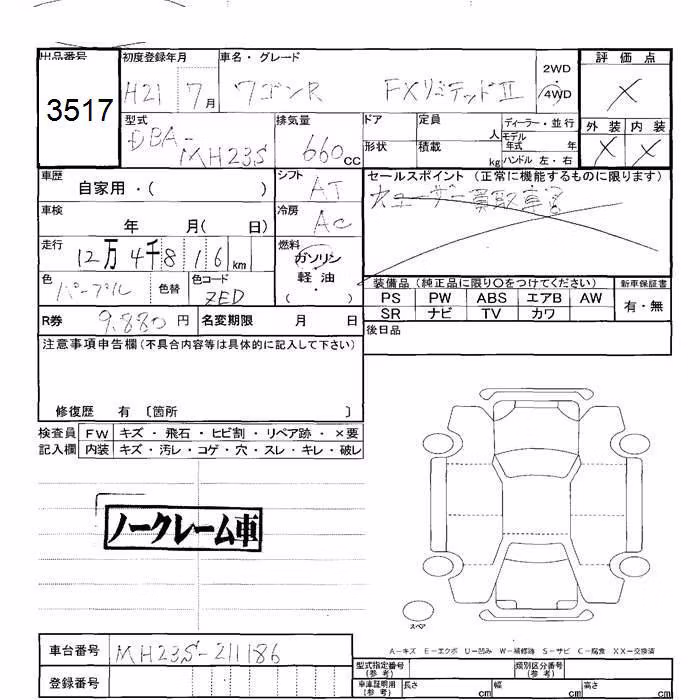 出品番号 初度登録年月 車名・グレード 評価点
3517 H21 7月 ワゴンR FXリミテッドⅡ 2WD 4WD ×
型式 排気量 ドア 定員 人 ディーラー・並行 外装 内装
DBA-MH23S 660cc 形状 積載 kg モデル年式 年 ハンドル 左・右 × ×
車歴 シフト セールスポイント(正常に機能するものに限ります)
自家用・( ) AT ユーザー買取車
車検 冷房
年 月( 日) AC
走行 燃料
12万4千816km ガソリン
軽油
( )
色 色替 色コード 装備品(純正品に限り○をつけてください) 新車保証書
パープル ZED PS PW ABS エアB AW 有・無
SR ナビ TV カワ
R券 9,880円 名変期限 月 日 後日品
注意事項申告欄(不具合内容等は具体的に記入して下さい)
修復歴 有 〔箇所 〕
検査員 FW キズ・飛石・ヒビ割・リペア跡・×要
記入欄 内装 キズ・汚レ・コゲ・穴・スレ・キレ・破レ
ノークレーム車
スペア
A-キズ E-エクボ U-凹み W-補修跡 S-サビ C-腐食 XX-交換済
車台番号 MH23S-211186
登録番号
型式指定番号(参考) 類別区分番号(参考)
車庫証明用(参考) 長さ cm 幅 cm 高さ cm